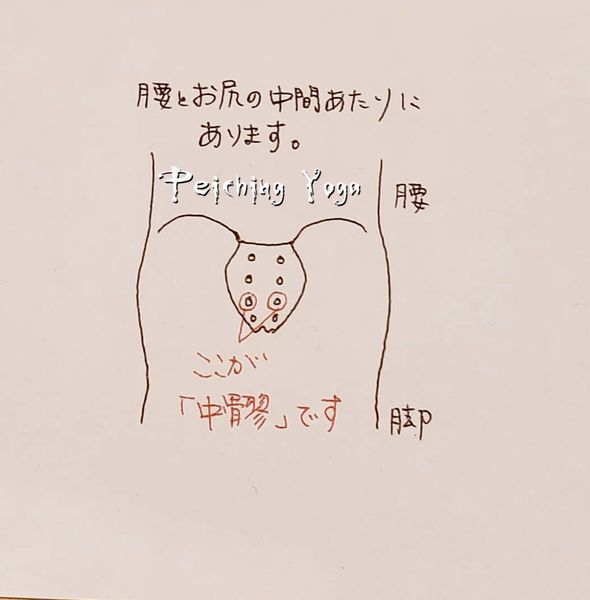 腰とお尻の中間あたりに
あります。
Peiching Yoga
腰
ここが
「中髎」です
脚